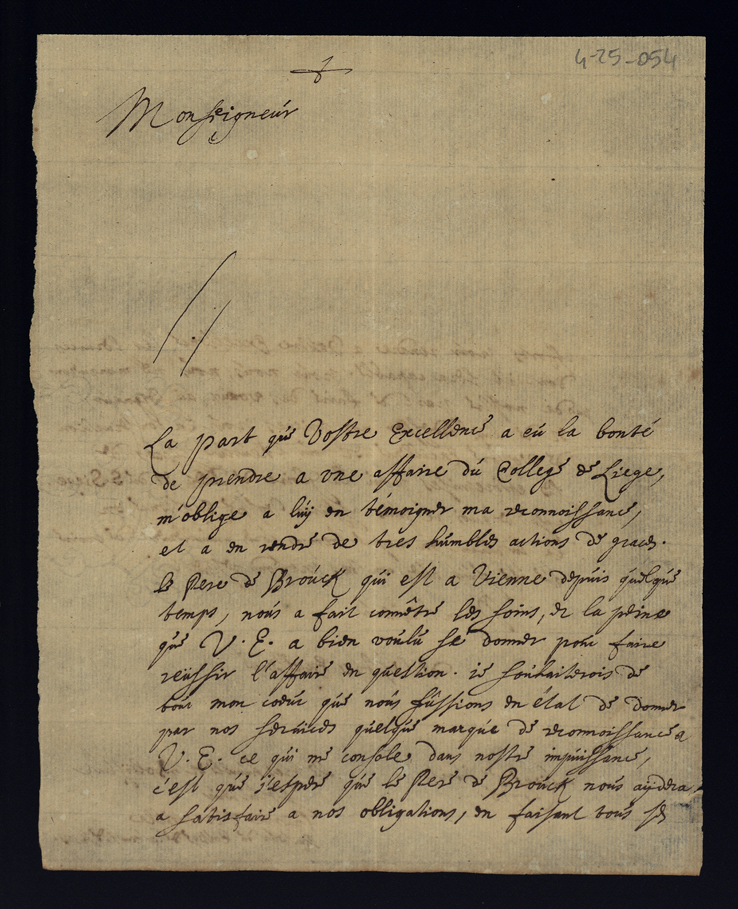 4-25-054
Monseigneur
La part que Vostre Excellence a eü la bonté
de prendre a vne affaire dú College de Liege,
m'oblige a lúy en témoigner ma reconnoissance,
et a en rendre de tres húmbles actions de graces.
le Pere de Broúck qúi est a Vienne depuis qúelqúe
temps, noús a fait connêtre les soins, et la peine
qúe V. E. a bien voúlú se donner poúr faire
reüssir l'affaire en question. ie soúhaiterois de
toút mon coeúr qúe noús fússions en état de donner
par nos seruices qúelqúe marqúe de reconnoissance a
V. E. ce qúi me console dans nostre impúissance,
c'est qúe j'espere qúe le Pere de Broúck noús aydera
a satisfaire a nos obligations, en faisant toús se